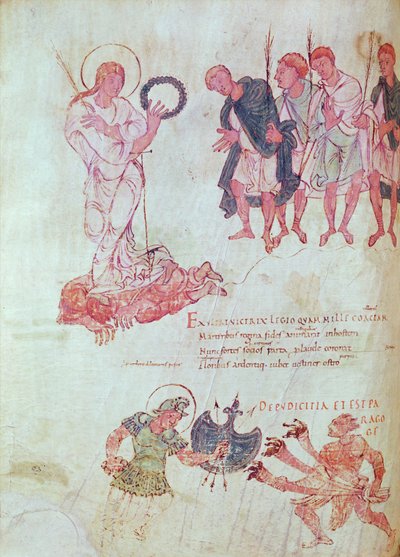 EXULTAT VICTRIX LEGIO QUAM MILLE COACTAM
Martiribus regina fides animarat inhostem
Nunc fortes socios parta plaude coronat
Floribus ardentiq. iubet vestirier ostro
DEPUDICITIA ET EST PA
RAGO
GE